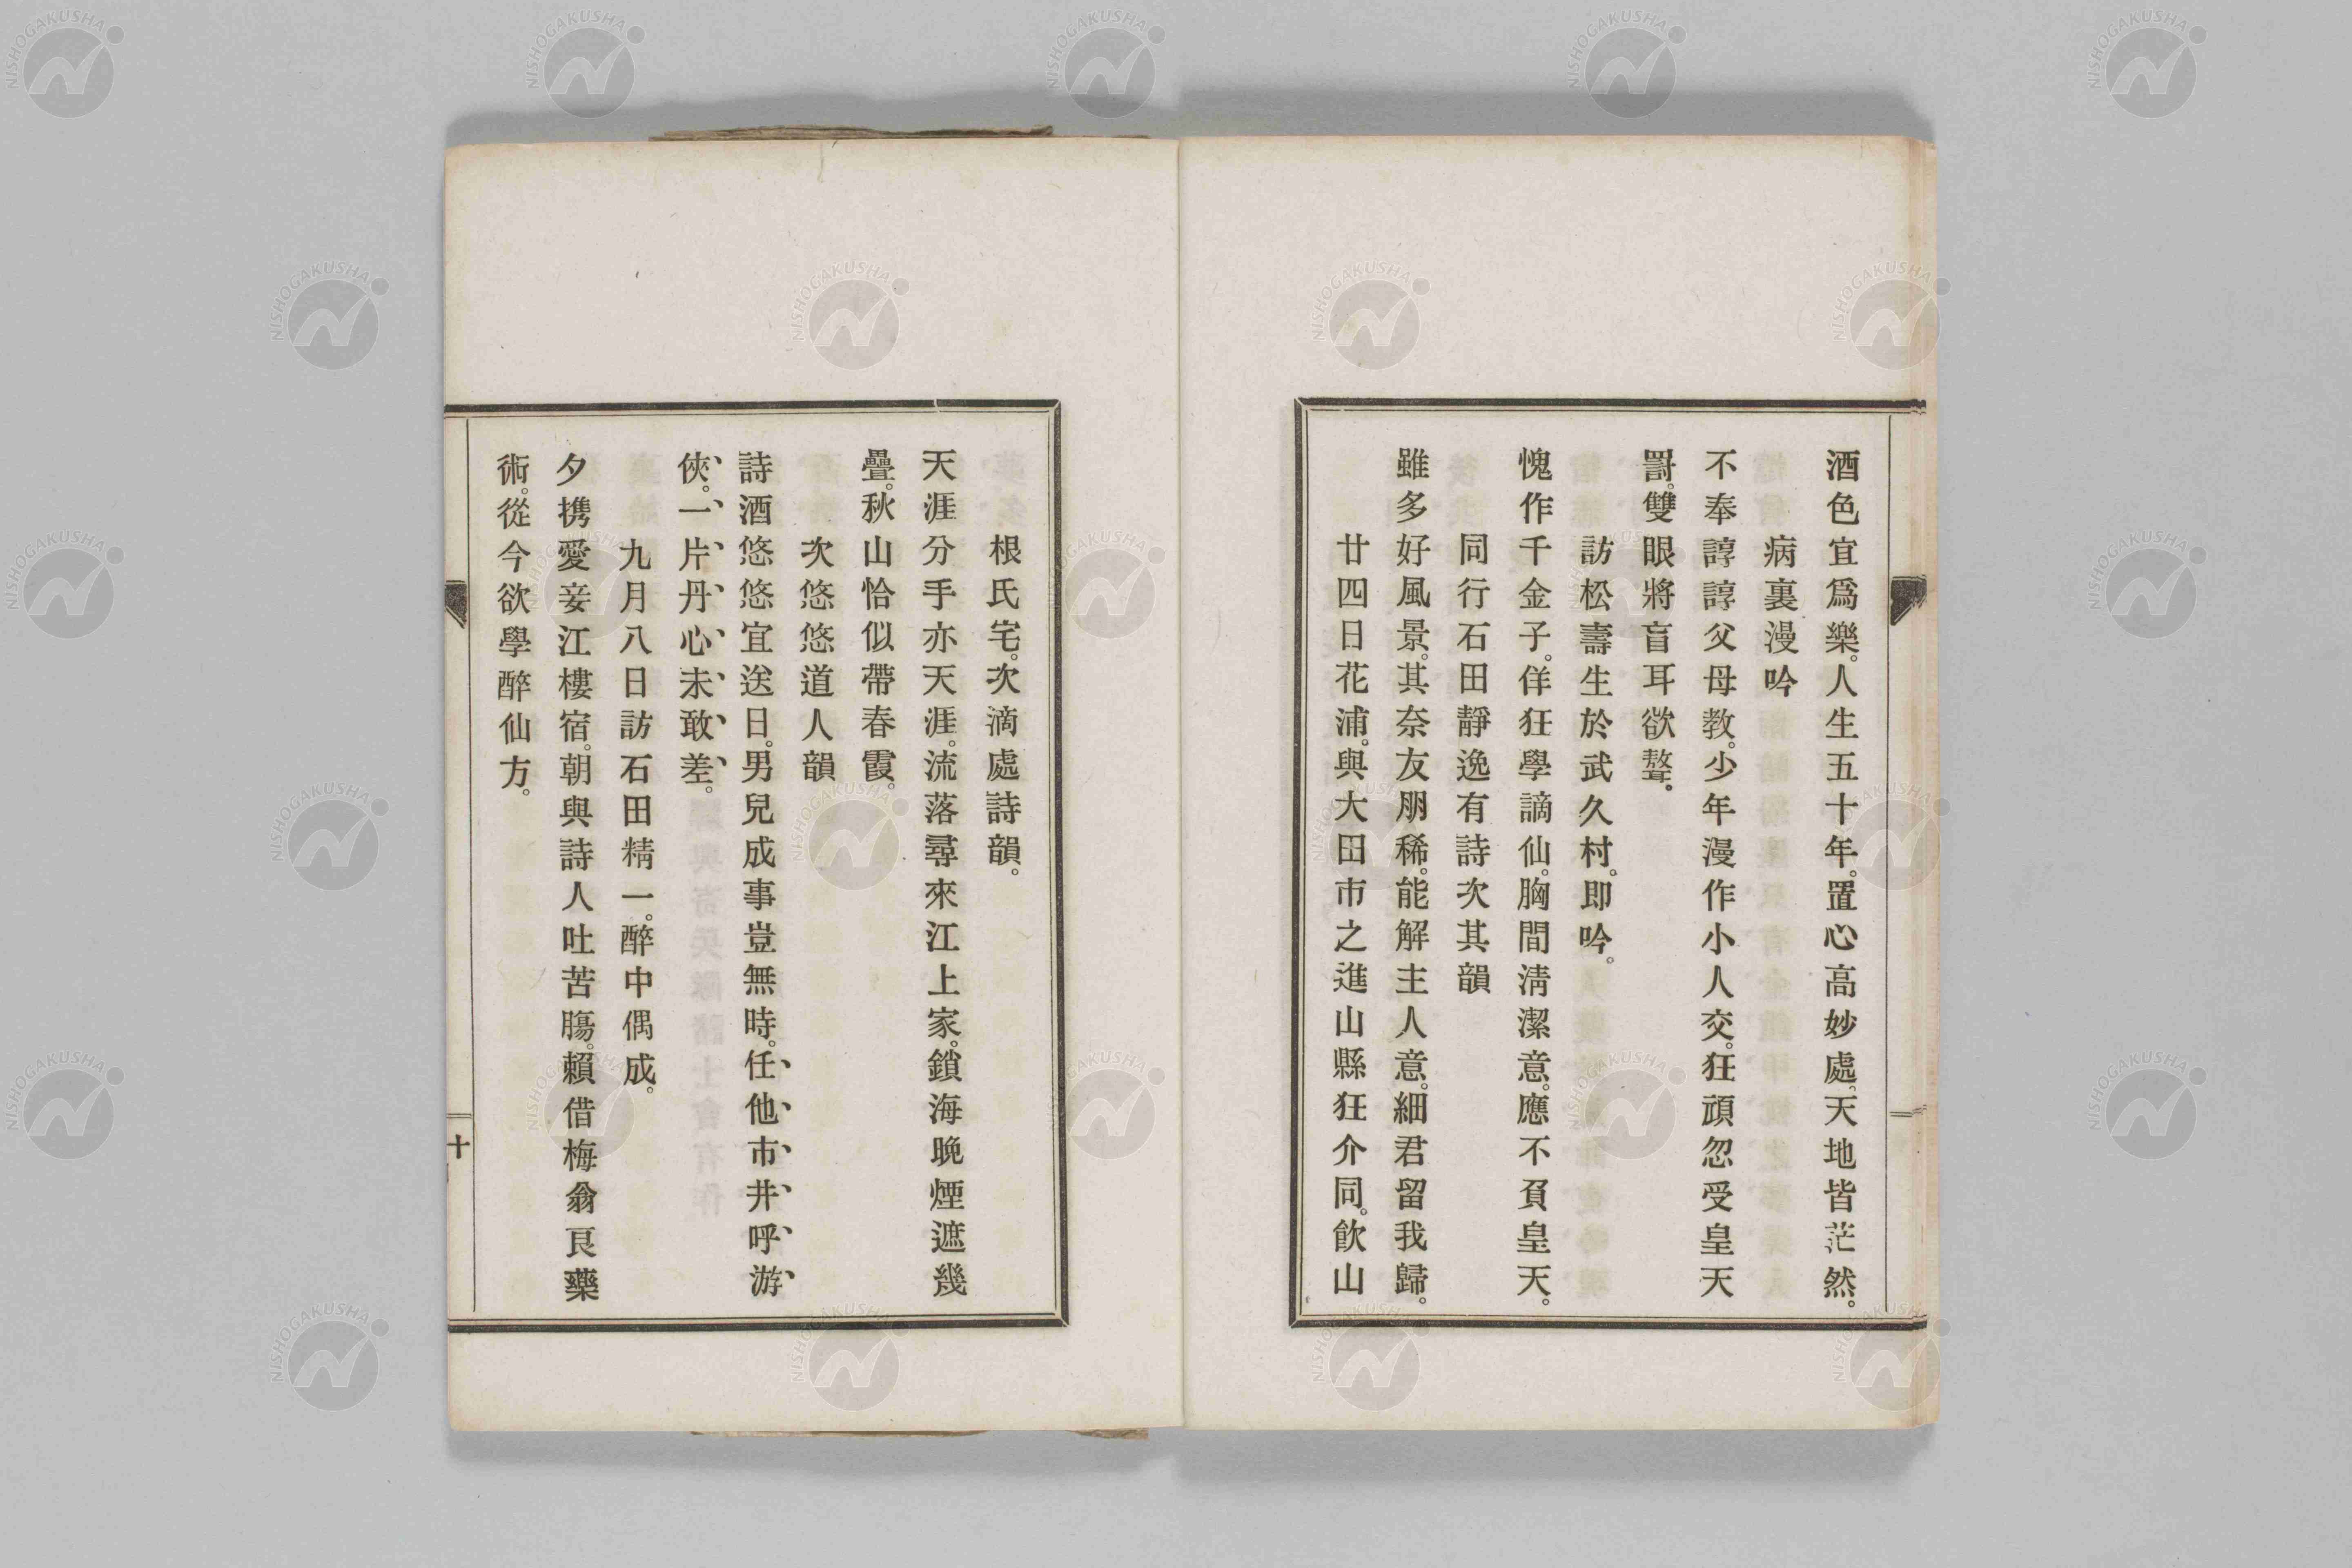 酒色宜爲樂。人生五十年。置心高妙處。天地皆茫然。
病裏漫吟
不奉諄諄父母教。少年漫作小人交。狂頑忽受皇天
罸。雙眼將盲耳欲聱。
訪松壽生於武久村。即吟。
愧作千金子。佯狂學謫仙。胸間淸潔意。應不負皇天。
同行石田靜逸有詩次其韻
雖多好風景。其奈友朋稀。能解主人意。細君留我歸。
廿四日花浦。與大田市之進山縣狂介同。飮山
根氏宅。次滴處詩韻。
天涯分手亦天涯。流落尋來江上家。鎖海晩煙遮幾
疊。秋山恰似帶春霞。
次悠悠道人韻
詩酒悠悠宜送日。男兒成事豈無時。任他市井呼游
俠。一片丹心未敢差。
九月八日訪石田精一。醉中偶成。
夕携愛妾江樓宿。朝與詩人吐苦膓。賴借梅翁良藥
術。從今欲學醉仙方。
十
NISHOGAKUSHA